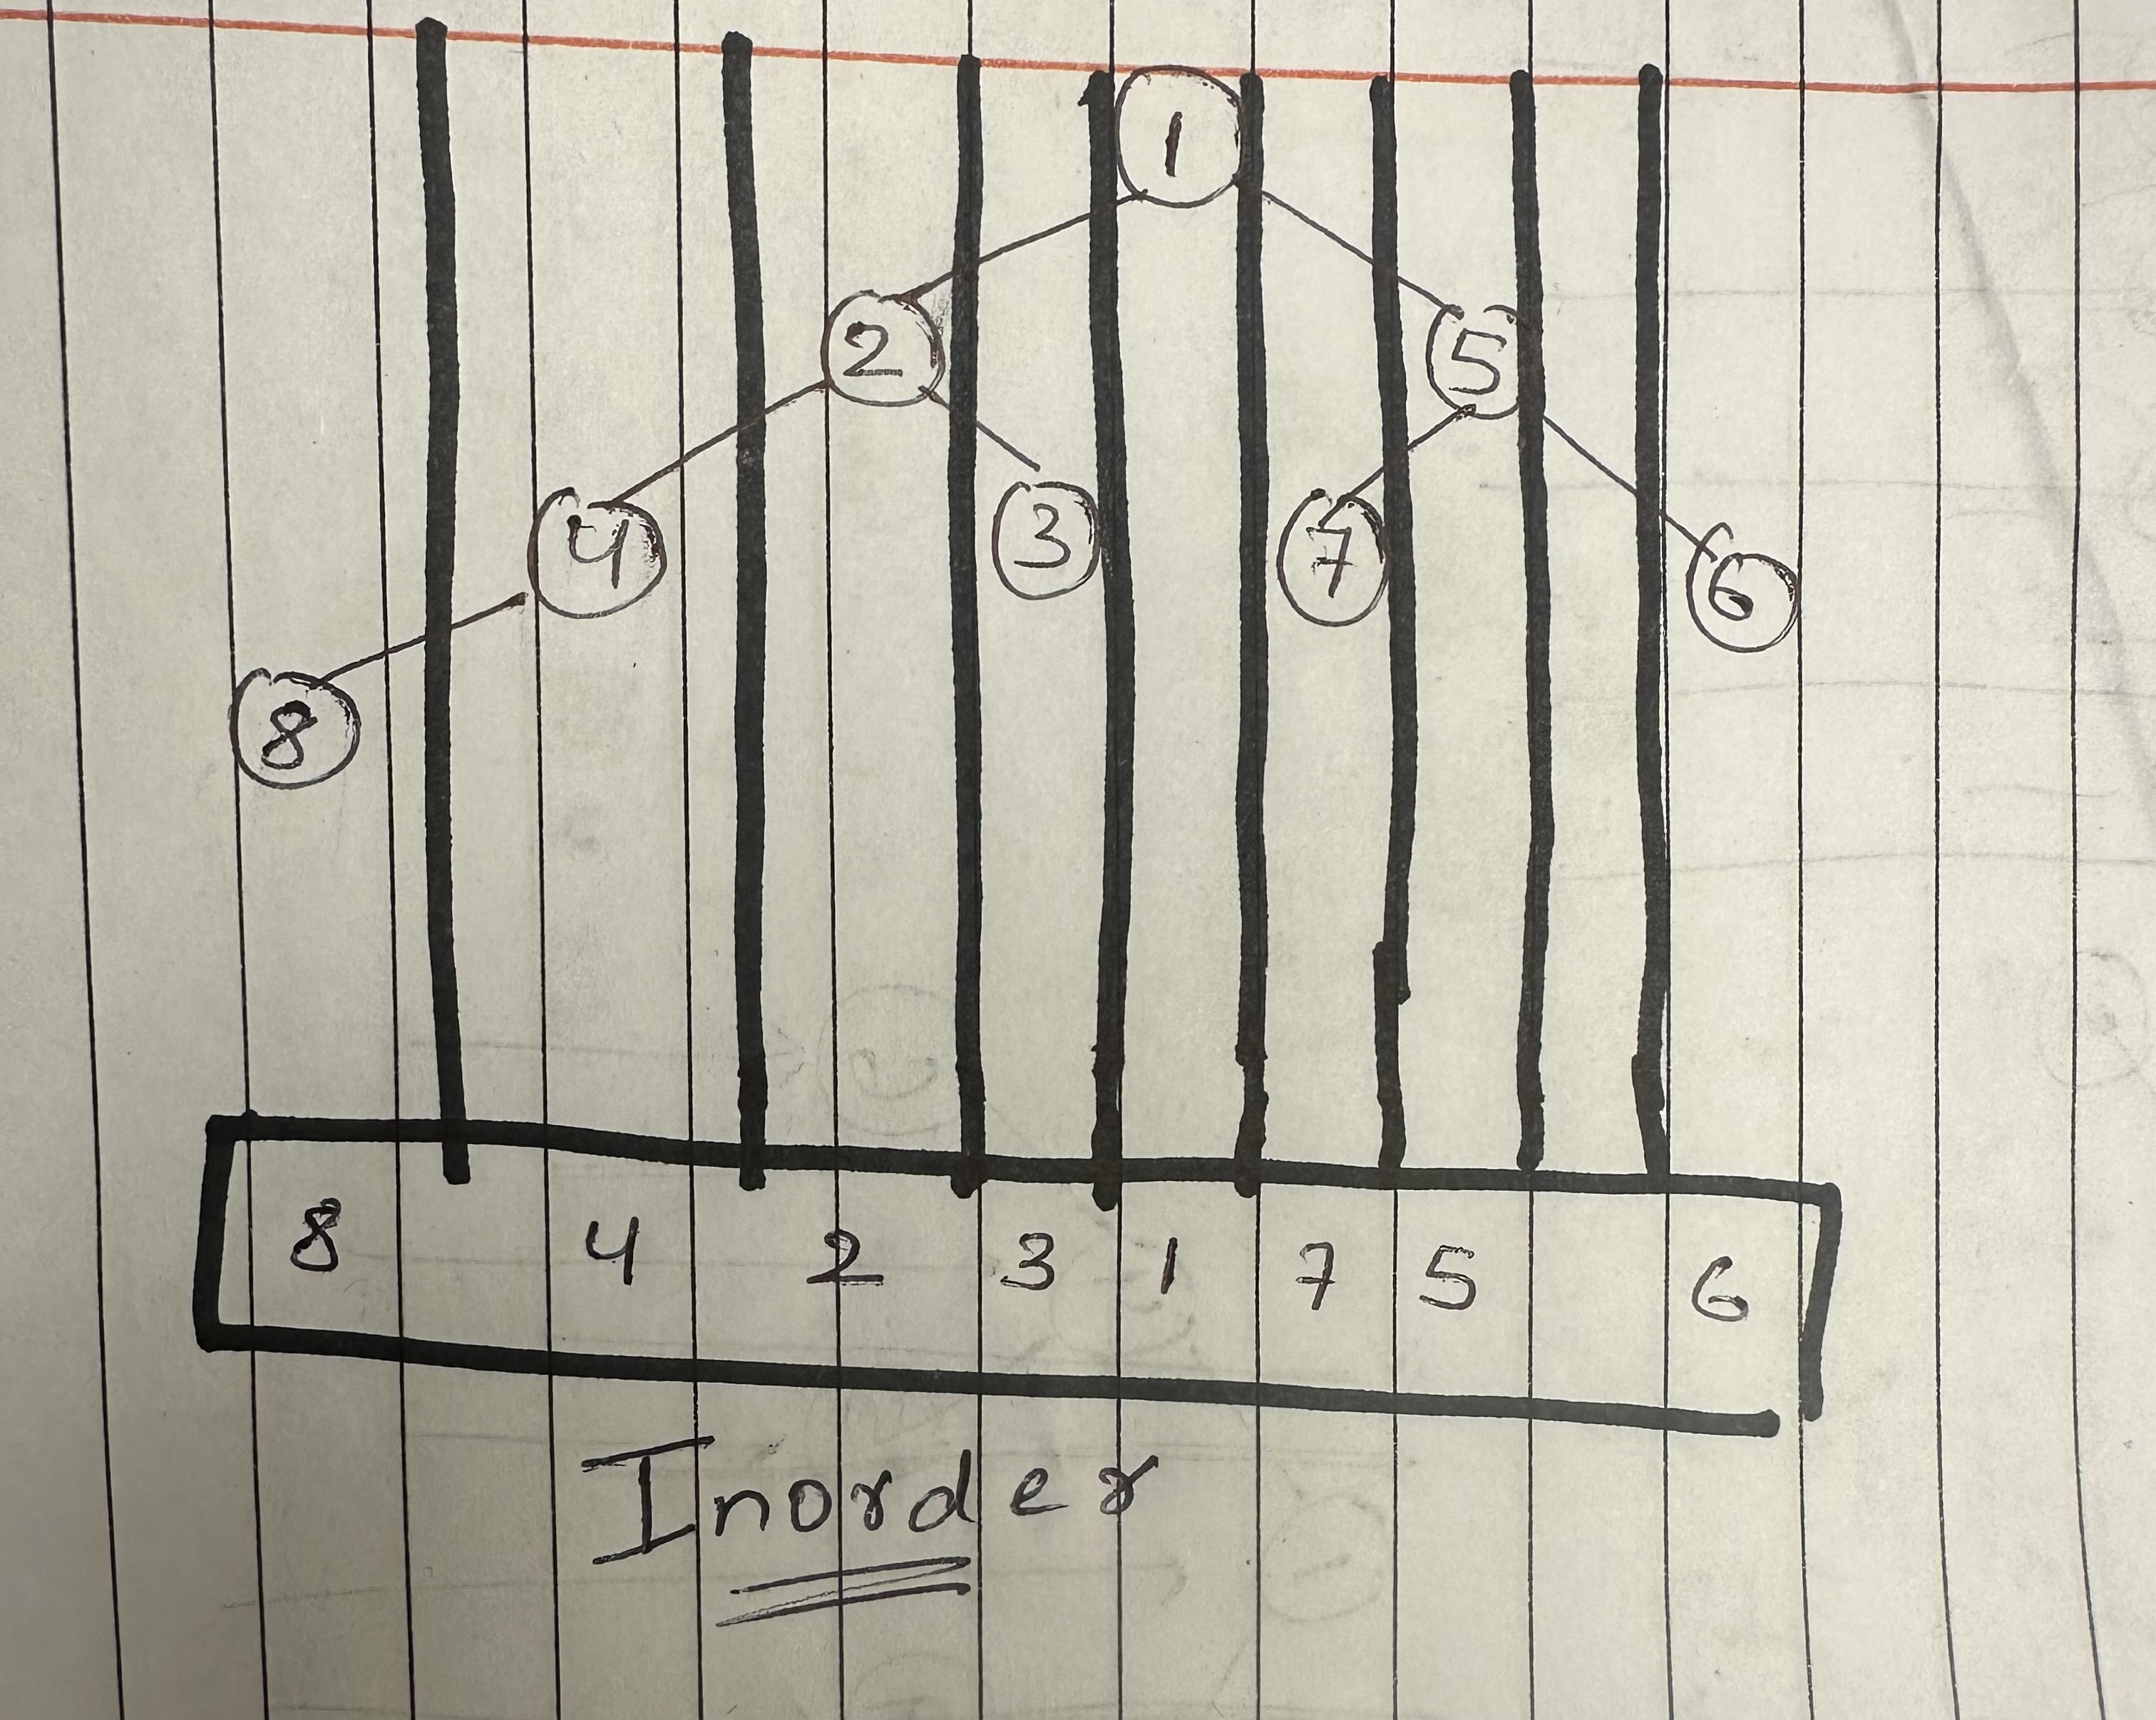 1
2 5
4 3 7 6
8
8 4 2 3 1 7 5 6
Inorder